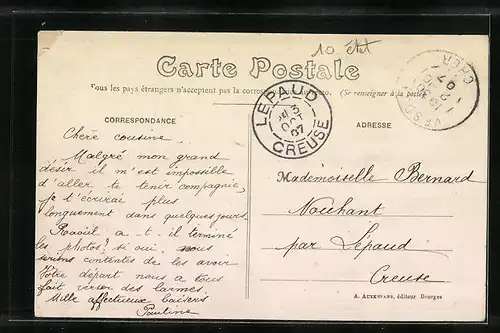 10 état
Carte Postale
Tous les pays étrangers n'acceptent pas la correspondance (Se renseigner à la poste)
CORRESPONDANCE
ADRESSE
LEPAUD
3
OCT
07
CREUSE
CHER
07
Chère cousine
Malgré mon grand
désir il m'est impossible
d'aller te tenir compagnie,
je t'écrirai plus
longuement dans quelques jours.
Raoul a-t-il terminé
les photos? si oui, nous
serions contentes de les avoir
Votre départ nous a tous
fait verser des larmes.
Mille affectueux baisers
Pauline
Mademoiselle Bernard
Nouhant
par Lepaud
Creuse
A. AUXENFANS, éditeur Bourges